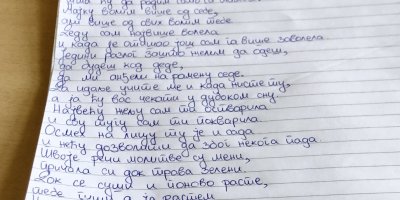 да родим само
Мајку волим више од себе,
али више од свих волим тебе.
Деду сам највише волела
и када је отишао још сам га више заволела.
Једини разлог зашто желим да одем,
да будеш код деде,
да ми анђели на рамену седе.
За идаље учите ме и када нисте ту,
а ја ћу вас чекати у дубоком сну.
Највећу жељу сам ти остварила
и сву тугу сам ти покварила.
Осмех на лицу ту је и сада
и нећу дозволити да због некога пада.
Твоје речи молитве су мени,
причала си док трова зелени.
Док се суши и поново расте,